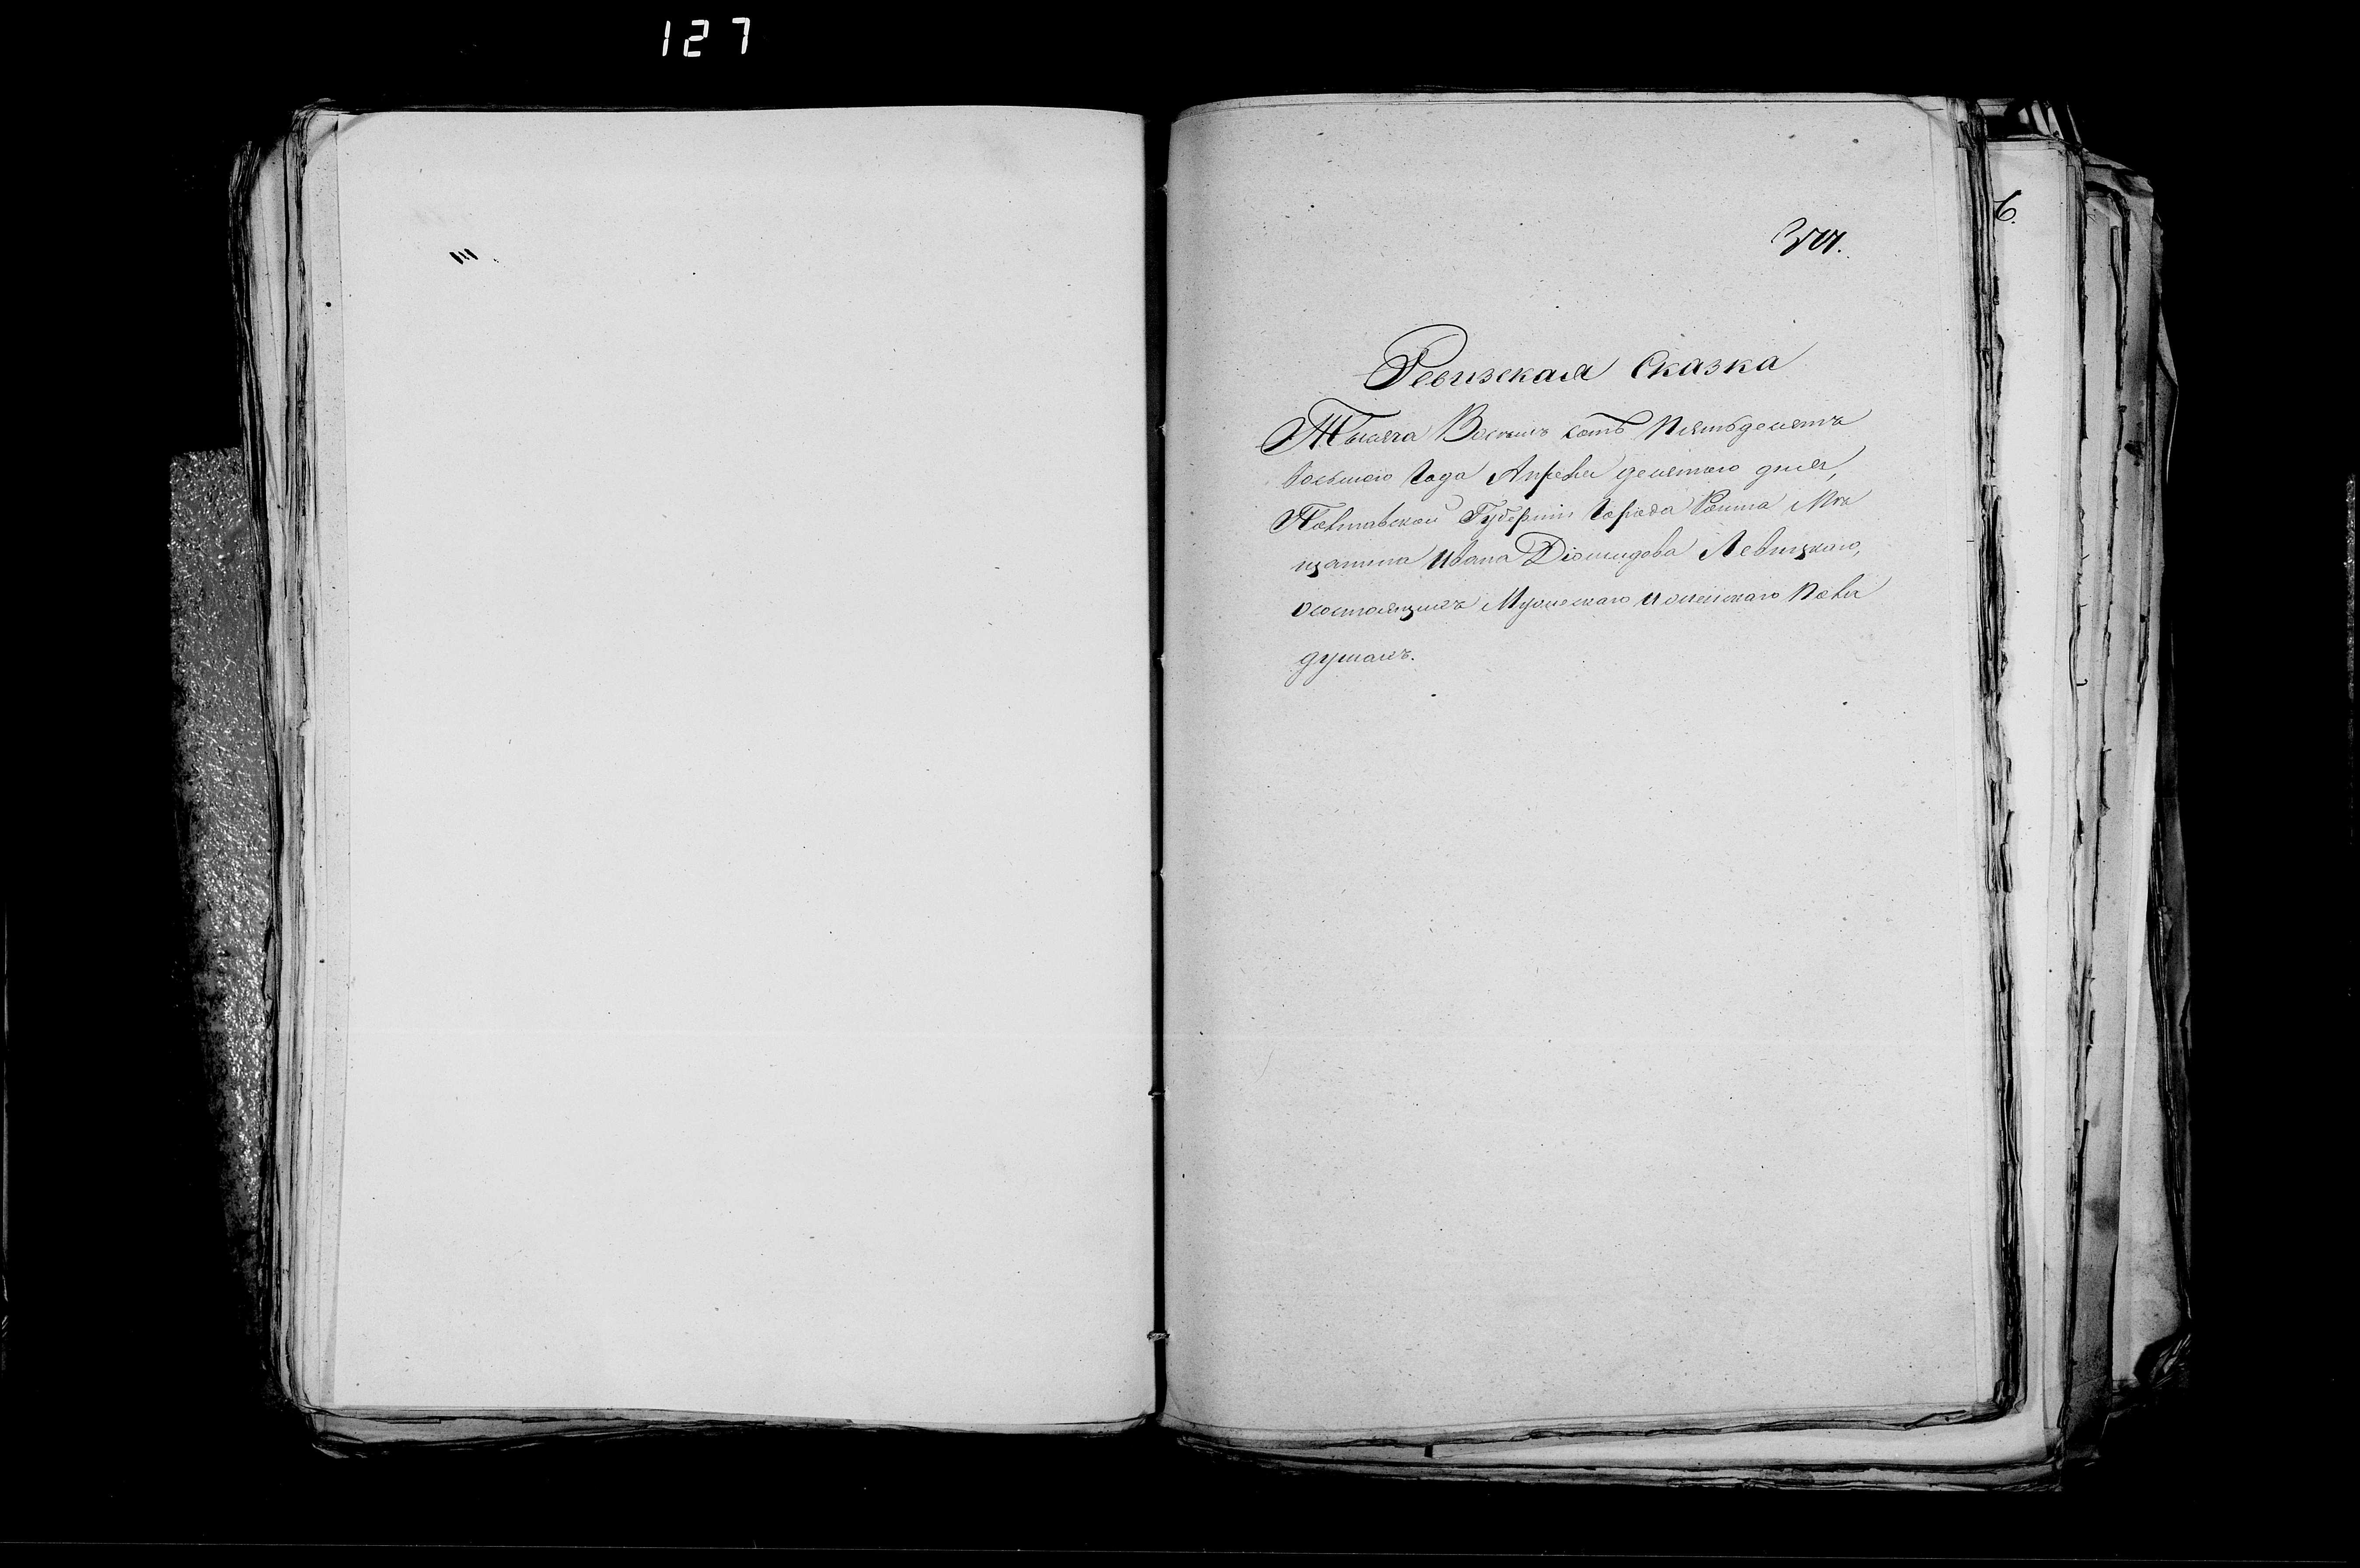 127
Ревизская Сказка
Тысяча Восемь сотъ Пятьдесятъ
восьмаго года Апреля десятаго дня,
Полтавской Губерніи города Ромна Мѣ
щанина Ивана Діомидова Левицкаго,
осостоящихъ Мужескаго и женскаго Пола
душахъ.